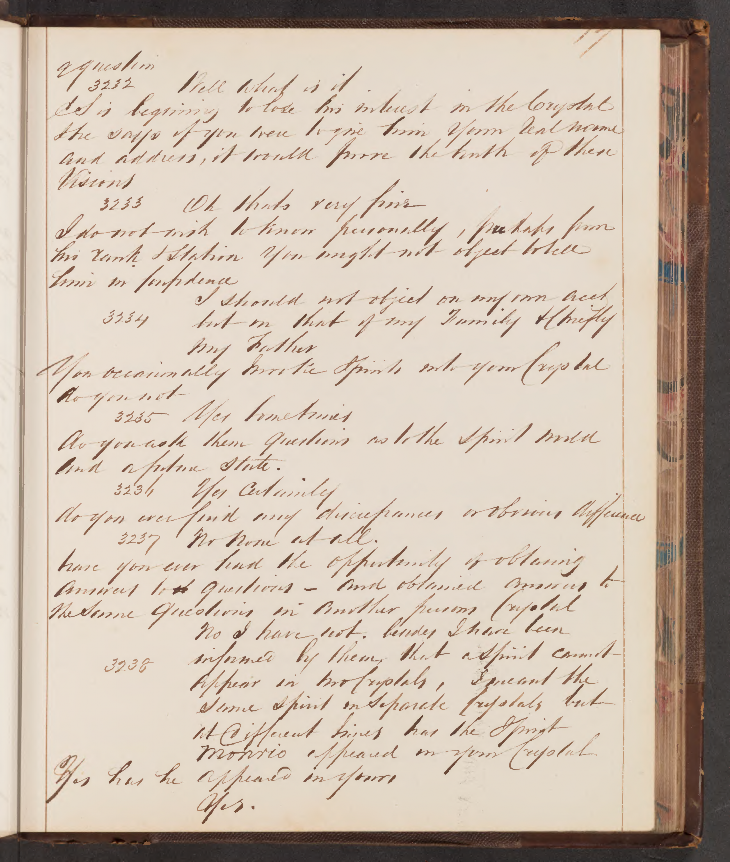 question
3232 Well what is it
is begining to lose his interest in the Crystal
She says if you were to give him your real name
and address, it would prove the truth of these
Visions
3233 Oh thats very fine
I do not wish to know personally, perhaps from
his rank & Station you might not object to tell
him in confidence
I should not object on my own acct
3234 but on that of my Family & Chiefly
my Father
You occasionally invoke Spirits into your Crystal
do you not
3235 Yes Sometimes
do you ask them questions as to the Spirit world
and a future State.
3236 Yes Certainly
do you ever find any discrepances or obvious difference
3237 No None at all.
have you ever had the opportunity of obtaining
answers to questions – and obtained answers to
the Same Questions in another persons Crystal
No I have not. besides I have been
3238 informed by them, that a Spirit cannot
appear in two Crystals, I meant the
Same Spirit in Separate Crystals but
at Different times has the Spirit
appeared in your Crystal
Yes has he appeared in yours
Yes.